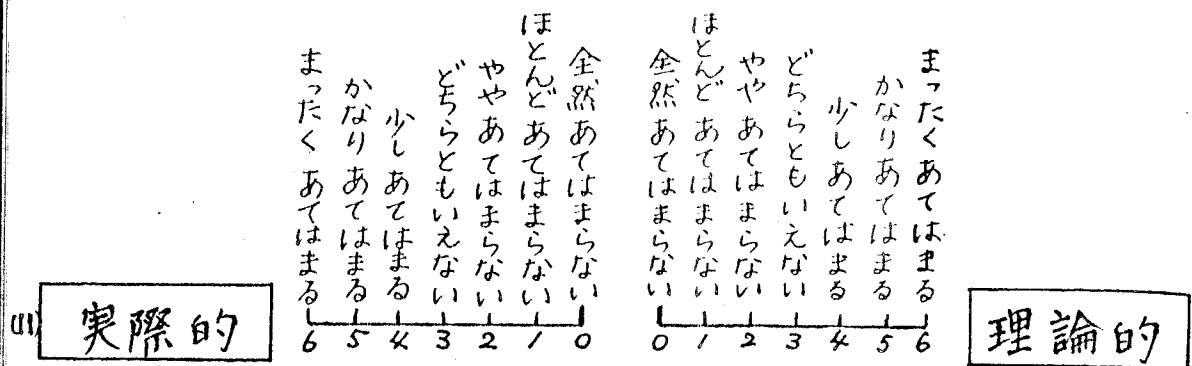 (11)
実際的
まったくあてはまる
かなりあてはまる
少しあてはまる
どちらともいえない
ややあてはまらない
ほとんどあてはまらない
全然あてはまらない
6 5 4 3 2 1 0
全然あてはまらない
ほとんどあてはまらない
ややあてはまらない
どちらともいえない
少しあてはまる
かなりあてはまる
まったくあてはまる
0 1 2 3 4 5 6
理論的